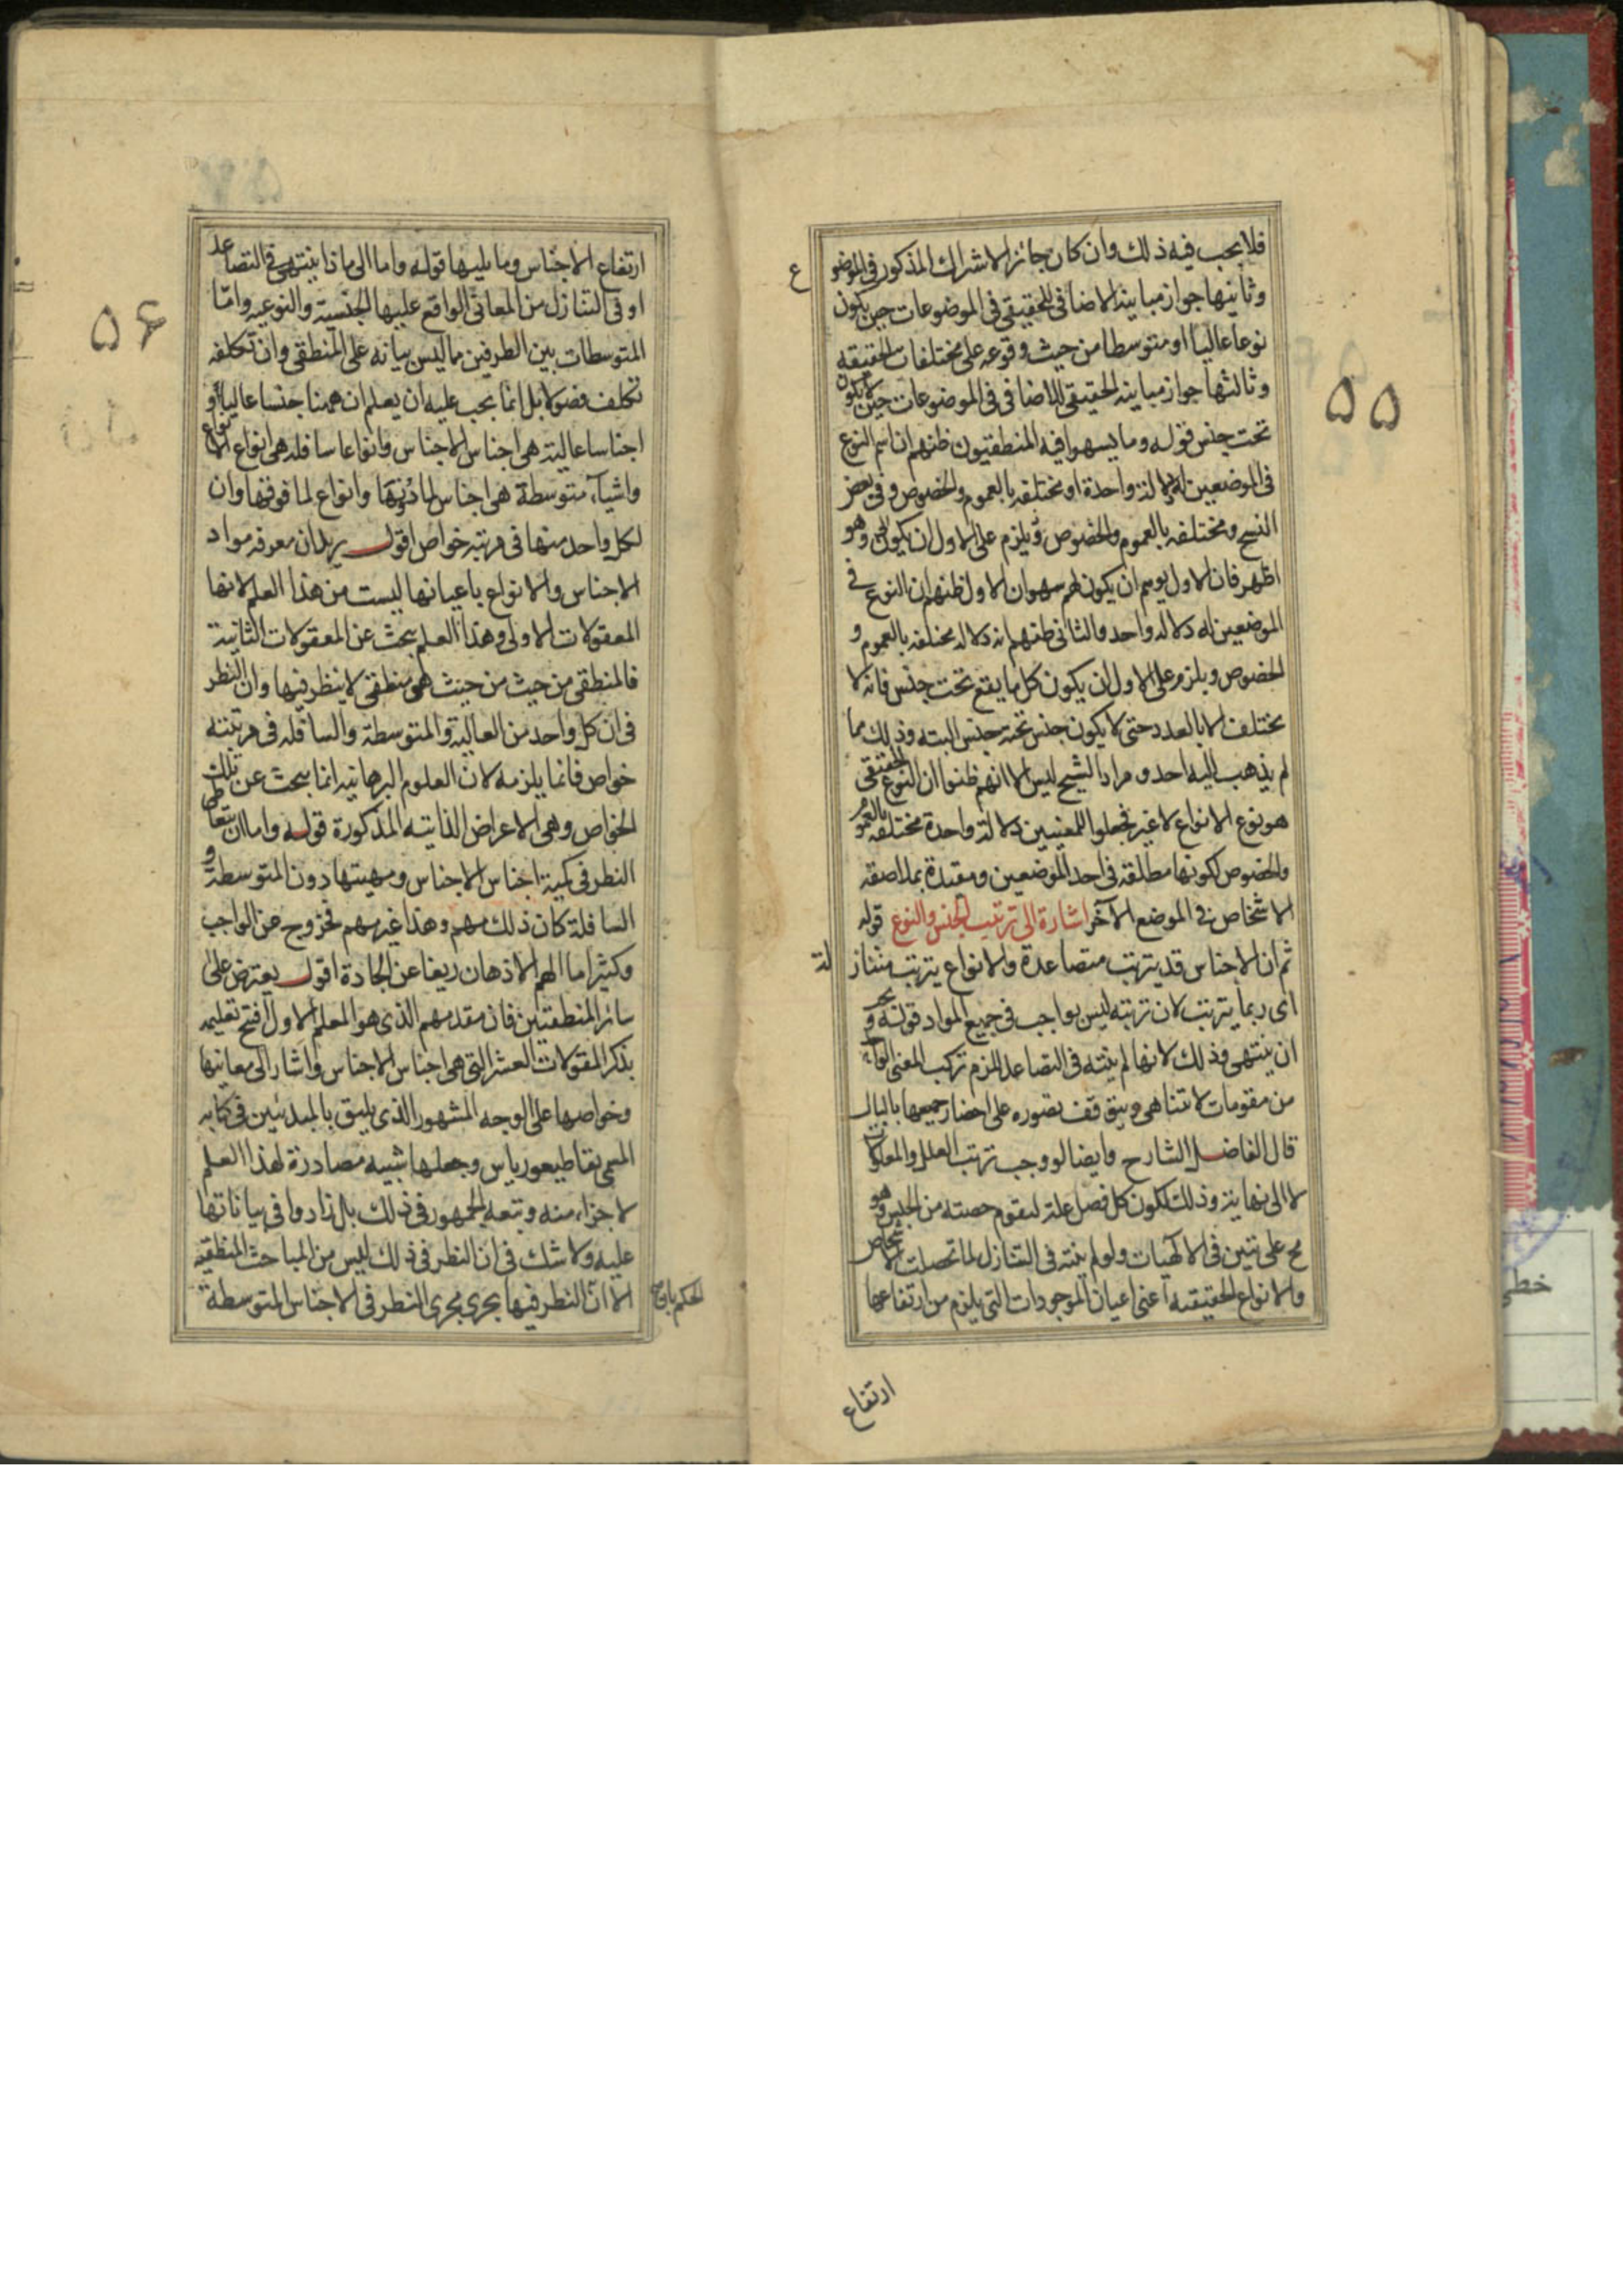 ۵۵
فلا يجب فيه ذلك وان كان جائز الاشتراك المذكور في الموضوع
وثانيها جواز مباينة الاضافي للحقيقي في الموضوعات حين يكون
نوعا عاليا او متوسطا من حيث وقوعه على مختلفات الحقيقه
وثالثها جواز مباينه الحقيقي للاضافي في الموضوعات حين لا يكون
تحت جنس قوله ومما يسهوا فيه المنطقيون ظنهم ان اسم النوع
في الموضعين له دلالة واحدة او مختلفه بالعموم والخصوص وفي بعض
النسخ ومختلفه بالعموم والخصوص ويلزم على الاول ان يكون وهو
اظهر فان الاول يوهم ان يكون لهم سهوان الاول ظنهم ان النوع في
الموضعين له دلاله واحد والثاني ظنهم انه دلاله مختلفه بالعموم و
الخصوص ويلزم على الاول ان يكون كل ما يقع تحت جنس فانه لا
يختلف الا بالعدد حتى لا يكون جنس تحته جنس البته وذلك مما
لم يذهب اليه احد ومراد الشيخ ليس الا انهم ظنوا ان النوع الحقيقي
هو نوع الانواع لا غير فجعلوا للمعنيين دلالة واحدة مختلفه بالعموم
والخصوص لكونها مطلقة في احد الموضعين ومقيدة بملاصقه
الاشخاص في الموضع الآخر اشارة الى ترتيب الجنس والنوع قوله
ثم ان الاجناس قد يترتب متصاعدة والانواع يترتب متنازلة
اي ربما يترتب لان ترتبه ليس بواجب في جميع المواد قوله ويجب
ان ينتهي وذلك لانها لم ينته في التصاعد للزم تركب المعنى الواحد
من مقومات لا تتناهى ويتوقف تصوره على احضار جميعها بالبال
قال الفاضل الشارح وايضا لو وجب ترتب العلل والمعلولات
لا الى نهاية وذلك لكون كل فصل علة لتقوم حصته من الجنس وهو
مح على تبين في الالهيات ولو لم ينته في التنازل لما تحصلت الاشخاص
والانواع الحقيقيه اعني اعيان الموجودات التي يلزم من ارتفاعها
ارتفاع
۵۶
ارتفاع الاجناس وما يليها قوله واما الى ما ذا ينتهى في التصاعد
او في التنازل من المعاني الواقع عليها الجنسية والنوعيه وامّا
المتوسطات بين الطرفين مما ليس بيانه على المنطقي وان تكلفه
تكلف فضولا بل انما يجب عليه ان يعلم ان ههنا جنسا عاليا او
اجناسا عالية هي اجناس الاجناس وانواعا سافله هي انواع الانواع
واشياء متوسطة هي اجناس لما دونها وانواع لما فوقها وان
لكل واحد منها في مرتبه خواص اقول يريد ان معرفه مواد
الاجناس والانواع باعيانها ليست من هذا العلم لانها
المعقولات الاولى وهذا العلم يبحث عن المعقولات الثانية
فالمنطقي من حيث من حيث هي منطقي لا ينظر فيها وان النظر
في ان كل واحد من العالية والمتوسطة والسافله في مرتبته
خواص فانما يلزمه لان العلوم البرهانيه انما يبحث عن تلك
الخواص وهي الاعراض الذاتيه المذكورة قوله واما ان يتعاطى
النظر في كمية اجناس الاجناس ومهيتها دون المتوسطة و
السافلة كان ذلك مهم وهذا غير مهم فخروج عن الواجب
وكثيرا ما الهم الاذهان ريغا عن الجادة اقول يعترض على
سائر المنطقيين فان مقدمهم الذي هو المعلم الاول افتتح تعليمه
بذكر المقولات العشر التي هي اجناس الاجناس واشار الى معانيها
وخواصها على الوجه المشهور الذي يليق بالمبدئين في كتابه
المسمى بقاطيغورياس وجعلها شبيه مصادرة لهذا العلم
لا جزاء منه وتبعه الجمهور في ذلك بل زادوا في بياناتها
عليه ولا شك في ان النظر في ذلك ليس من المباحث المنطقيه
الا ان النظر فيها يجرى مجرى النظر في الاجناس المتوسطة
خطى